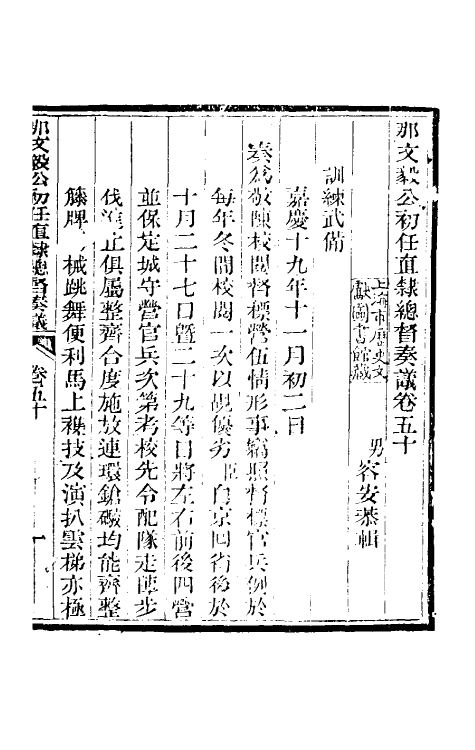 那文毅公初任直隸總督奏議卷五十
上海市歷史文
獻圖書館藏
男容安恭輯
訓練武備
嘉慶十九年十一月初二日
奏為敬陳校閱督標營伍情形事竊照督標官兵例於
每年冬間校閱一次以覘優劣臣自京回省後於
十月二十七日暨二十九等日將左右前後四營
並保定城守營官兵次第考校先令配隊走陣步
伐 止俱屬整齊合度施放連環鎗礮均能齊整
籐牌 械跳舞便利馬上雜技及演扒雲梯亦極
那文毅公初任直隸總督奏議
卷五十
一